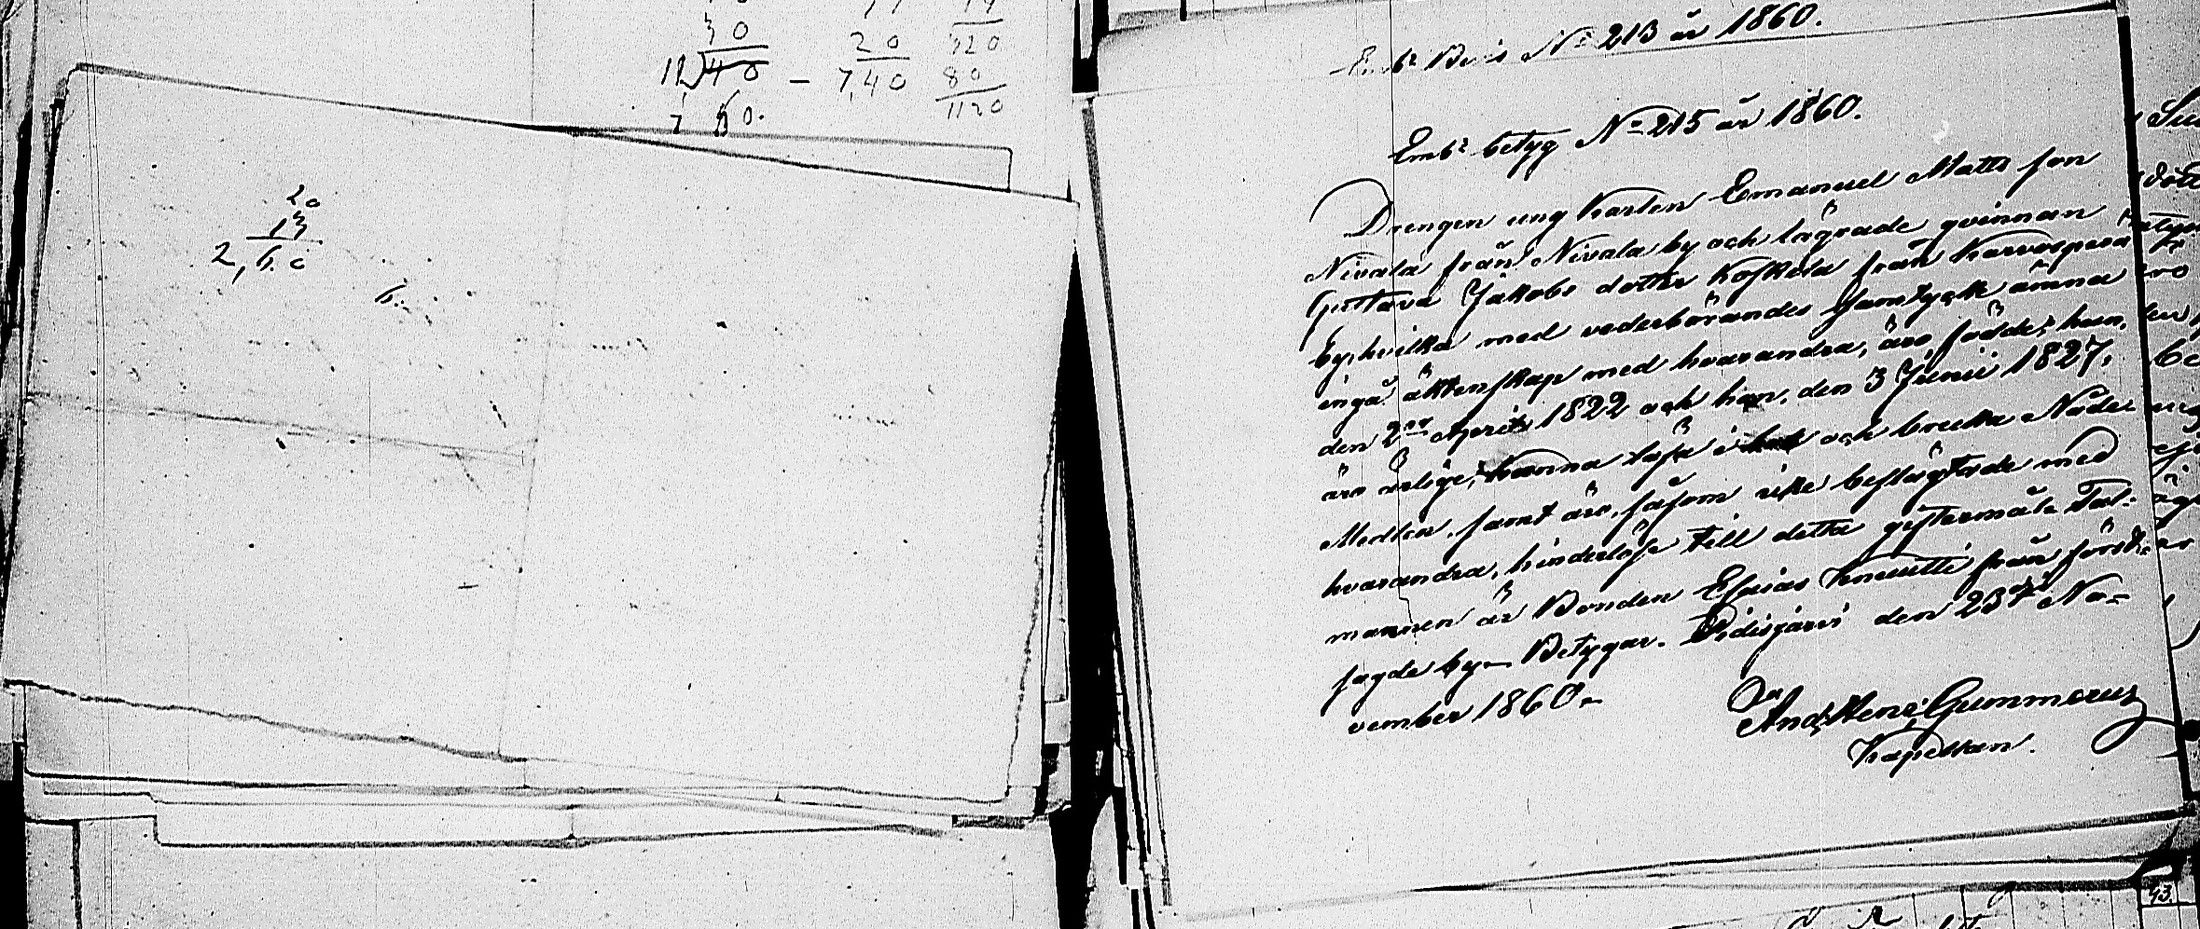 30
12)40 - 7,40
7 60.
20
320
80
1120
20
13
2,60
6.
Embr Bevis No 213 år 1860.
Embr betyg No 215 år 1860.
Drengen ung Karlen Emanuel Matts son
Nivala från Nivala by och lägrade qvinnan
Gustava Jakobs dotter Koskela från Karvosperä
by, hvilka med vederbörandes samtycke ämna
ingå äktenskap med hvarandra, äro födde; hon,
den 2dra April 1822 och han, den 3 Junii 1827,
äro ärlige, kunna läsa i bok och bruka Nåde-
Medlen, samt äro, såsom icke beslägtade med
hvarandra, hinderlöse till detta giftermål. Tal-
mannen är Bonden Esaias Knuutti från först-
sagde by. Betygar. Pidisjärvi den 23 No-
vember 1860.
And. Henr. Gummerus
Kapellan.
43.